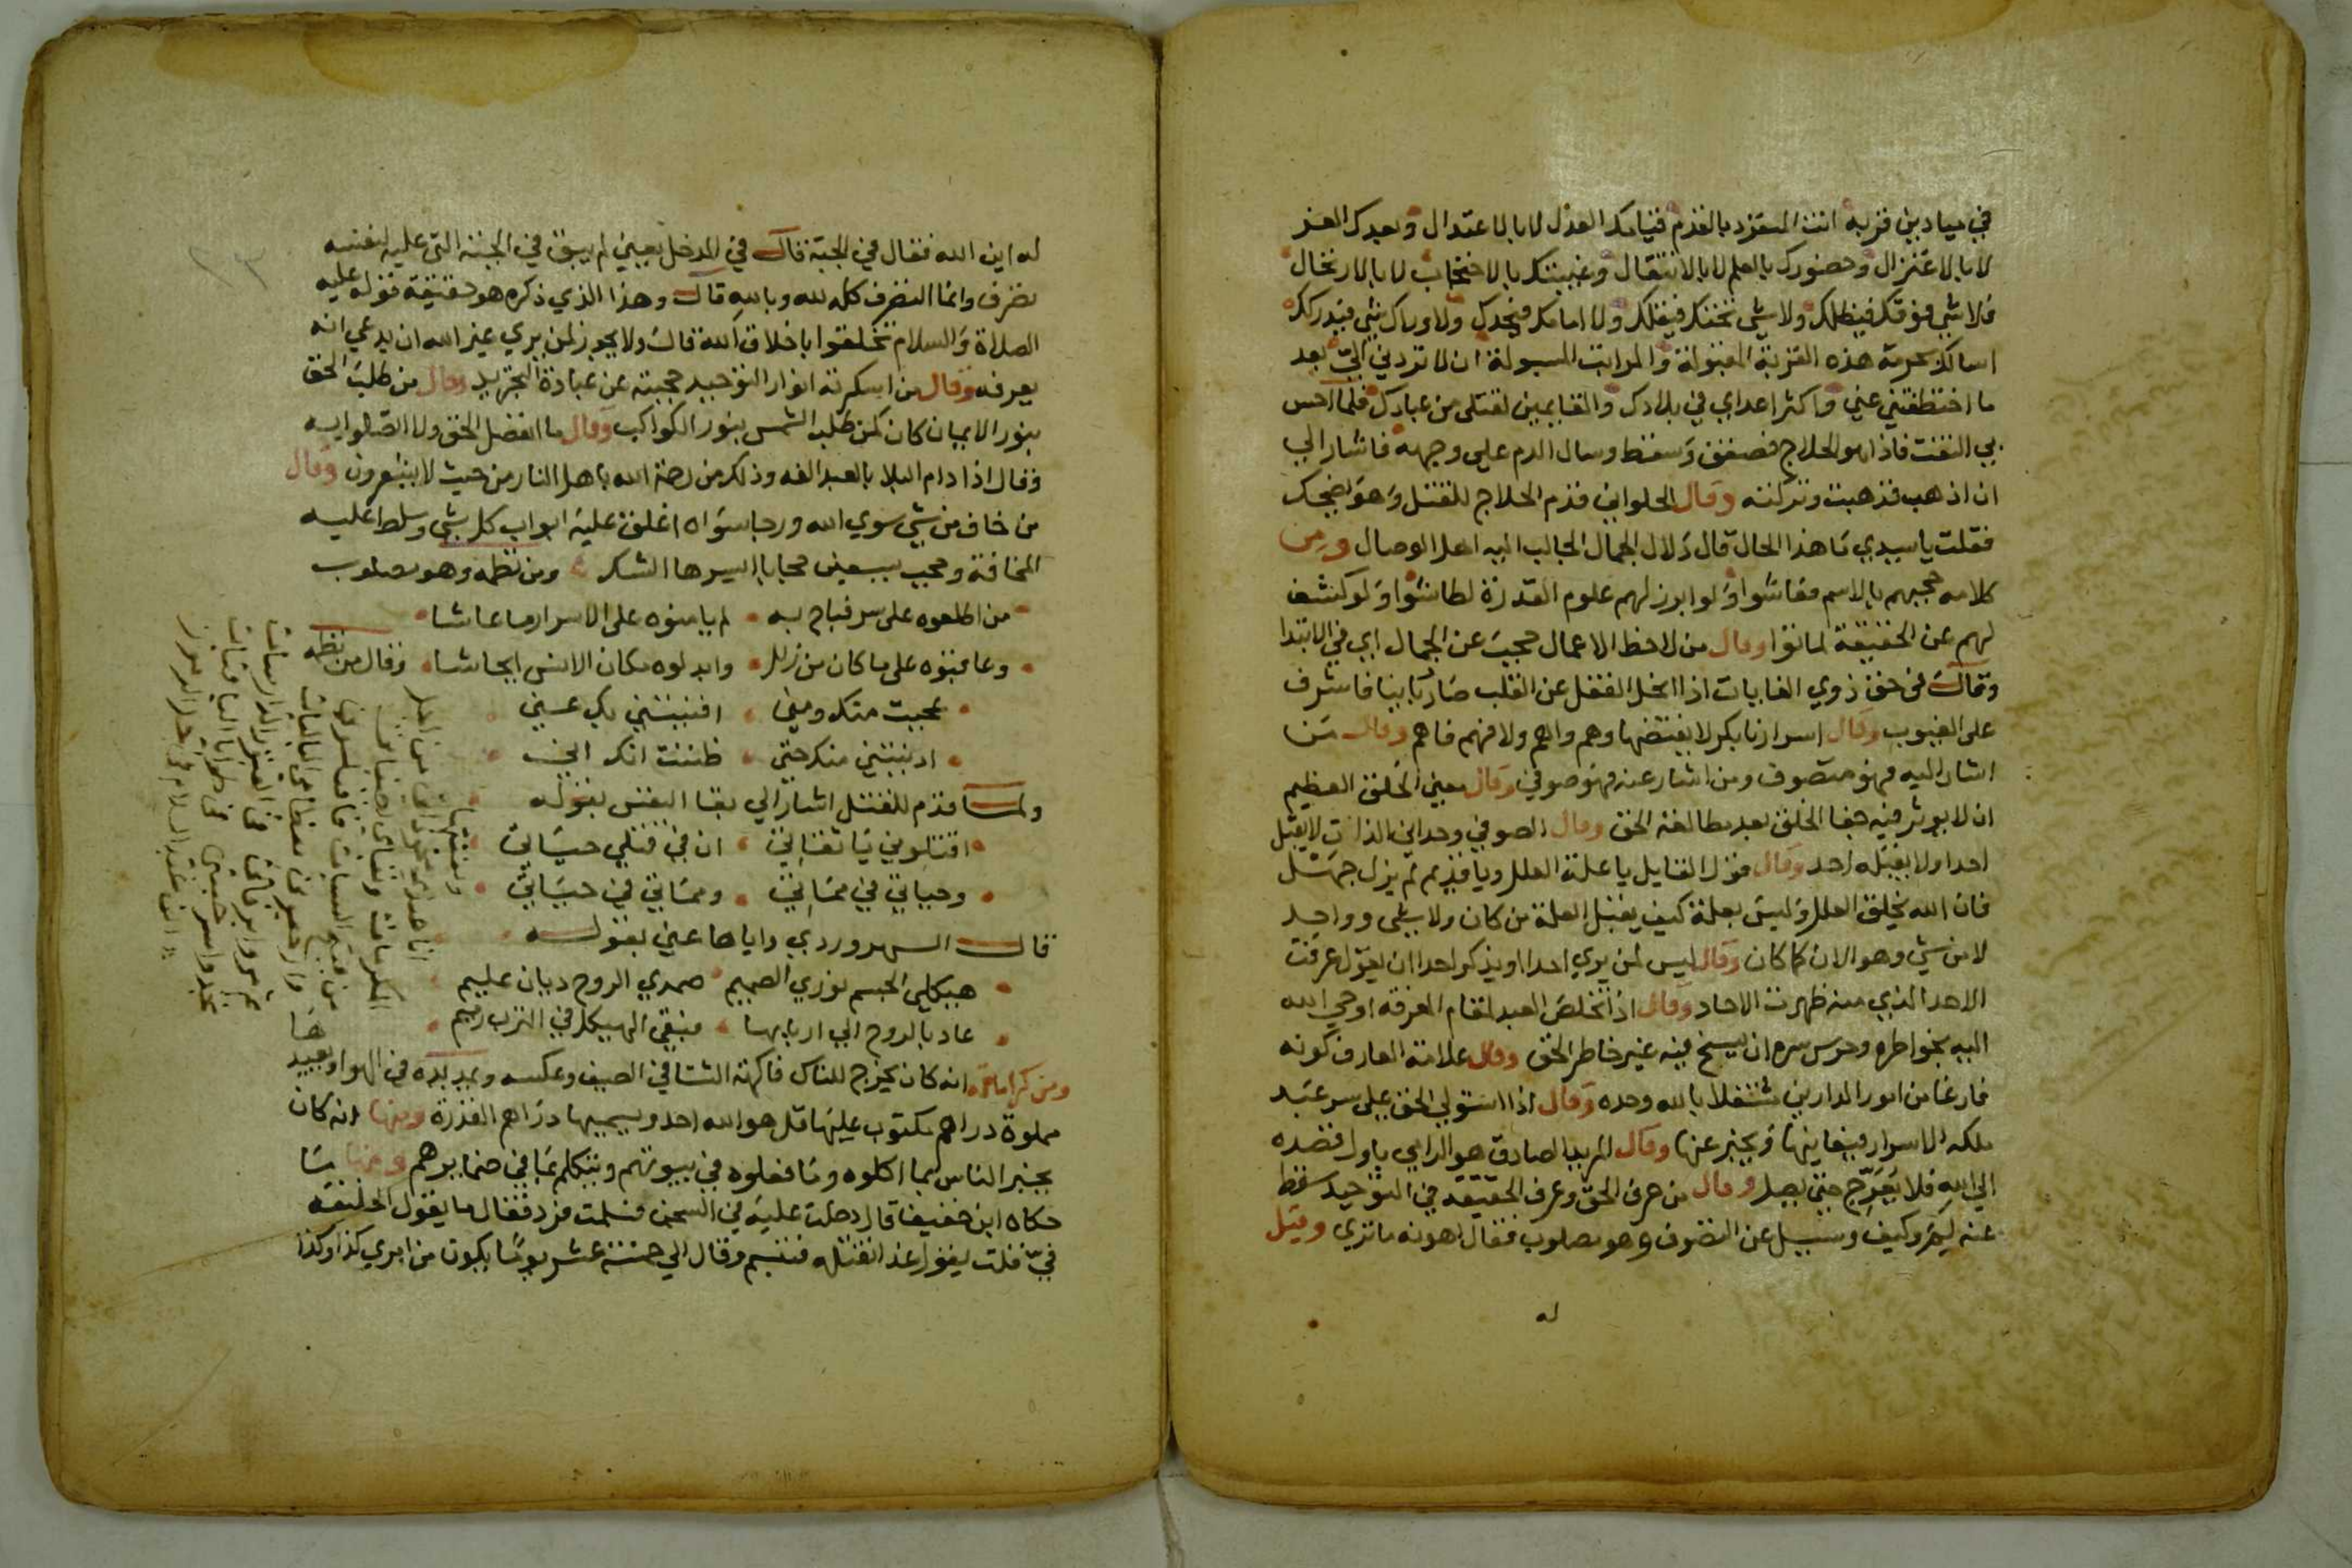 في ميادين قربه انت المتفرد بالقدم قيامك بالعدل لا بالاعتدال وبعدك بالعز
لا بالاعتزال وحضورك بالعلم لا بالانتقال وغيبتك بالاحتجاب لا بالارتحال
فلا شي فوقك فيظلك ولا شي تحتك فيقلك ولا امامك فيحدك ولا وراك شي فيدركك
اسالك بحرمة هذه القربة المقبولة والمراتب المسبولة ان لا تردني الي بعد
ما اختطفتني عني واكثر اعداي في بلادك والقايمين لقتلي من عبادك فلما احس
بي التفت فاذا هو الحلاج فصفق وسقط وسال الدم علي وجهه فاشار الي
ان اذهب فذهبت وتركته وقال الحلواني قدم الحلاج للقتل وهو يضحك
فقلت يا سيدي ما هذا الحال قال دلال الجمال الجالب اليه اهل الوصال ومن
كلامه حجبهم بالاسم فعاشوا ولو ابرز لهم علوم القدرة لطاشوا ولو كشف
لهم عن الحقيقة لماتوا وقال من لاحظ الاعمال حجب عن الجمال اي في الابتدا
وقال في حق ذوي الغايات اذا انحل القفل عن القلب صار ربانيا فاشرف
على الغيوب وقال اسرارنا بكر لا يفتضها وهم واهم ولا فهم فاهم وقال من
اشار اليه فهو متصوف ومن اشار عنه فهو صوفي وقال معني الخلق العظيم
ان لا يوثر فيه جفا الخلق بعد مطالعة الحق وقال الصوفي وحداني الذات لا يقبل
احدا ولا يقبله احد وقال قول القايل يا علة العلل ويا قديم لم يزل جهل
فان الله يخلق العلل وليس بعلة كيف يقبل العلة من كان ولا شي وواحد
لا من شي وهو الان كما كان وقال ليس لمن يري احدا او يذكر احدا ان يقول عرفت
الاحد الذي منه ظهرت الاحاد وقال اذا تخلص العبد لمقام المعرفة اوحي الله
اليه بخواطره وحرس سره ان يسنح فيه غير خاطر الحق وقال علامة العارف كونه
فارغا من امور الدارين مشتغلا بالله وحده وقال اذا استولي الحق علي سر عبد
ملكه الاسرار فيعاينها ويخبر عنها وقال المريد الصادق هو الرامي باول قصده
الي الله فلا يعرج حتي يصل وقال من عرف الحق وعرف الحقيقة في التوحيد سقط
عنه لم وكيف وسيل عن التصوف وهو مصلوب فقال اهونه ما تري وقيل
له
له اين الله فقال في الجبة قال في المدخل يعني لم يبق في الجبة التي عليه لنفسه
تصرف وانما التصرف كله لله وبالله قال وهذا الذي ذكره هو حقيقة قوله عليه
الصلاة والسلام تخلقوا باخلاق الله قال ولا يجوز لمن يري غير الله ان يدعي انه
يعرفه وقال من اسكرته انوار التوحيد حجبته عن عبادة التجريد وقال من طلب الحق
بنور الايمان كان كمن طلب الشمس بنور الكواكب وقال ما انفصل الحق ولا اتصلوا به
وقال اذا دام البلا بالعبد الفه وذلك من رحمة الله باهل النار من حيث لا يشعرون وقال
من خاف من شي سوي الله ورجا سواه اغلق عليه ابواب كل شي وسلط عليه
المخافة وحجب بسبعين حجابا ايسرها الشك ومن نظمه وهو مصلوب
من اطلعوه على سر فباح به لم يامنوه على الاسرار ما عاشا
وعاقبوه على ما كان من زلل وابدلوه مكان الانس ايحاشا وقال من نظمه
عجبت منك ومني افنيتني بك عني
ادنيتني منك حتي ظننت انك اني
ولما قدم للقتل اشار الي بقا النفس بقوله
اقتلوني يا ثقاتي ان في قتلي حياتي
وحياتي في مماتي ومماتي في حياتي
قال السهروردي واياها عني بقوله
هيكلي الجسم نوري الصميم صمدي الروح ديان عليم
عاد بالروح الي اربابها فبقي الهيكل في الترب رميم
ومن كراماته انه كان يخرج للناس فاكهة الشتا في الصيف وعكسه ويمد يده في الهوا ويعيدها
مملوة دراهم مكتوب عليها قل هو الله احد ويسميها دراهم القدرة ومنها انه كان
يخبر الناس بما اكلوه وما فعلوه في بيوتهم ويتكلم بما في ضمايرهم ومنها ما
حكاه ابن خفيف قال دخلت عليه في السجن فسلمت فرد فقال ما يقول الخليفة
في قلت يقول غدا نقتله فتبسم وقال الي خمسة عشر يوما يكون من امري كذا وكذا